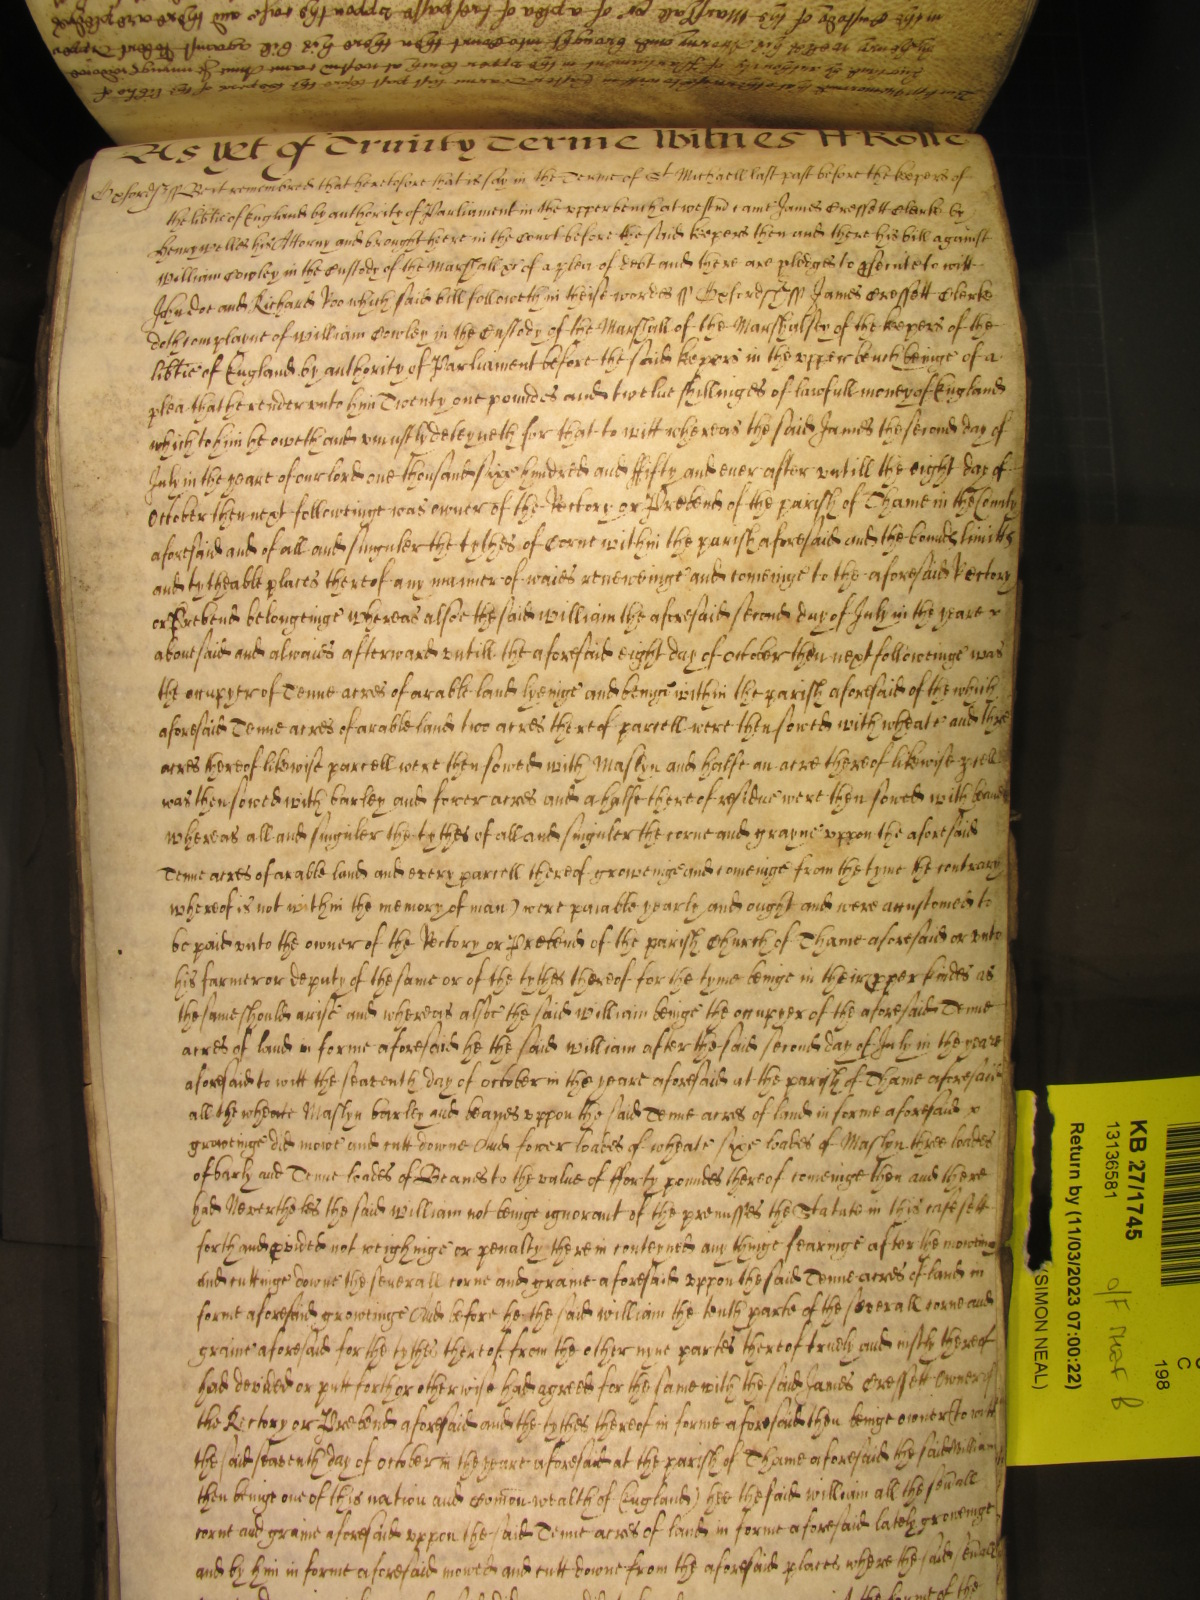 As yet of Trinity Terme Witnes H Rolle
Oxfordsh ss Be it remembred that heretofore that is say in the Terme of St Michaell last past before the keepers of
the lib̃tie of England by authoritie of Parliament in the vpper bench at westm̃ came James Cressett Clerke by
Henry Welles his Attorny and brought heere in the Court before the said keepers then and there his bill against
William Cowley in the Custody of the Marshall &c of a plea of debt and there are pledges to p̱secute to witt
John doe and Richard Roo which said bill followeth in theise wordes ss Oxfordsh ss James Cressett Clerke
doth complayne of William Cowley in the Custody of the Marshall of the Marshalsey of the keepers of the
lib̃tie of England by authority of Parliament before the said keepers in the vpper bench beinge of a
plea that he render vnto him Twenty one poundes and twelue shillinges of lawfull money of England
which to him he oweth and vniustly deteyneth for that to witt whereas the said James the second day of
July in the yeare of our lord one thousand sixe hundred and ffifty and ener after vntill the eight day of
October then next followeinge was owner of the Rectory or Prebend of the parish of Thame in the County
aforesaid and of all and singuler the tythes of Corne within the parish aforesaid and the bounds limitts
and tytheable places thereof any manner of waies reneweinge and comeinge to the aforesaid Rectory
or Prebend belongeinge whereas alsoe the said William the aforesaid second day of July in the yeare
abouesaid and alwaies afterward vntill the aforesaid eight day of October then next followeinge was
the occupyer of Tenne acres of arable land lyeinge and beinge within the parish aforesaid of the which
aforesaid Tenne acres of arable land two acres thereof parcell were then sowed with wheate and three
acres thereof likewise parcell were then sowed with Maslyn and halfe an acre thereof likewise p̱cell
was then sowed with barley and fower acres and a halfe thereof residue were then sowed with beanes
whereas all and singuler the tythes of all and singuler the corne and grayne vppon the aforesaid
Tenne acres of arable land and every parcell thereof groweinge and comeinge from the tyme the contrary
whereof is not within the memory of man) were paiable yearly and ought and were accustomed to
be paid vnto the owner of the Rectory or Prebend of the parish Church of Thame aforesaid or vnto
his farmer or deputy of the same or of the tythes thereof for the tyme beinge in their p̱per kindes as
the same should arise and whereas alsoe the said William beinge the occupyer of the aforesaid Tenne
acres of land in forme aforesaid he the said William after the said second day of July in the yeare
aforesaid to witt the seaventh day of October in the yeare aforesaid at the parish of Thame aforesaid
all the wheate Maslyn barley and beanes vppon the said Tenne acres of land in forme aforesaid
groweinge did mowe and cutt downe And fower loades of wheate sixe loades of Maslyn three loades
of barly and Tenne loades of Beanes to the value of fforty poundes thereof comeinge then and there
had Neverthelies the said William not beinge ignorant of the premisses the Statute in this case sett
forth and p̱vided not weighinge or penalty therein conteyned any thinge fearinge after the moweing
and cuttinge downe the severall corne and graine aforesaid vppon the said Tenne acres of land in
forme aforesaid groweinge And before he the said William the tenth parte of the severall corne and
graine aforesaid for the tythes thereof from the other nyne partes thereof truely and iustly thereof
had devided or putt forth or otherwise had agreed for the same with the said James Cressett Owner of
the Rectory or Prebend aforesaid and the tythes thereof in forme aforesaid then beinge owner to witt
the said seaventh day of October in the yeare aforesaid at the parish of Thame aforesaid the said William
then beinge one of this nation and Com̃on wealth of England) hee the said William all the sev̄all
corne and graine aforesaid vppon the said Tenne acres of land in forme aforesaid lately groweinge
and by him in forme aforesaid mowed and cutt downe from the aforesaid places where the said sev̄all
KB 27/1745
13136581
Return by (11/03/2023 07:00:22)
(SIMON NEAL)
O/F Map B
198
C